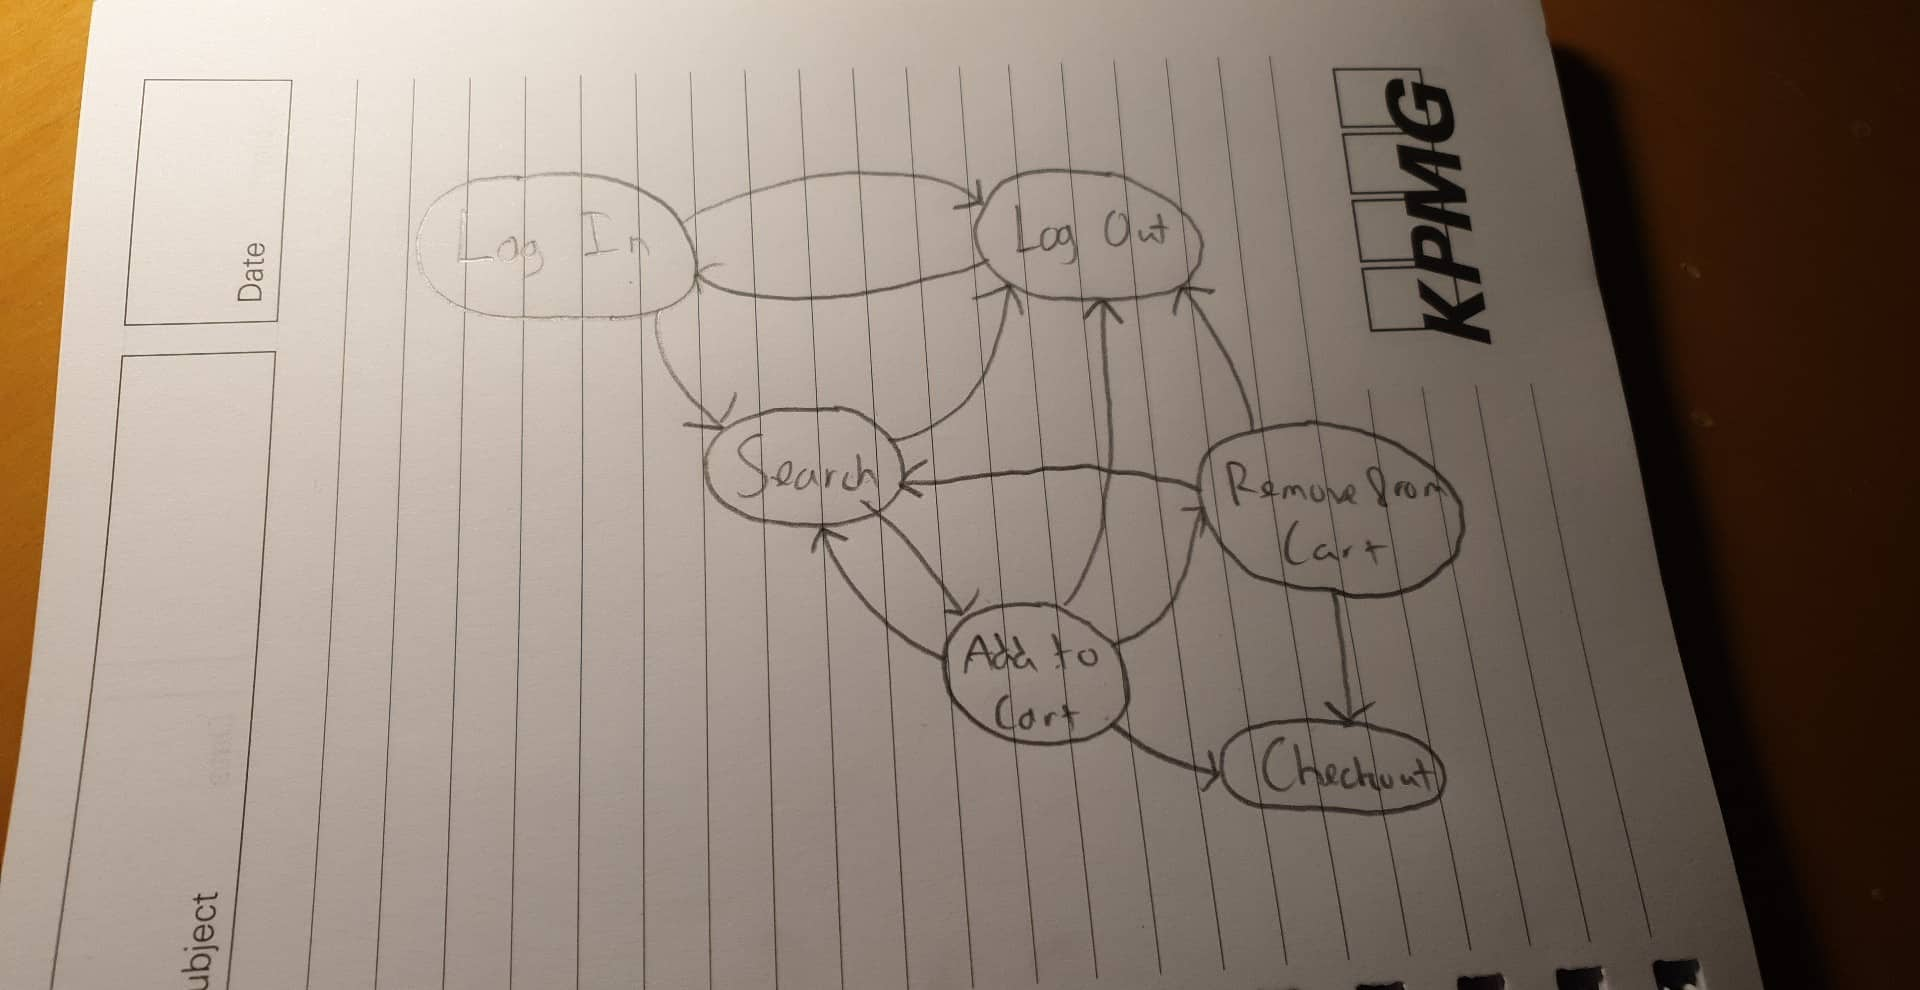 Date
ubject
KPMG
Log In
Log Out
Search
Remove from
Cart
Add to
Cart
Checkout